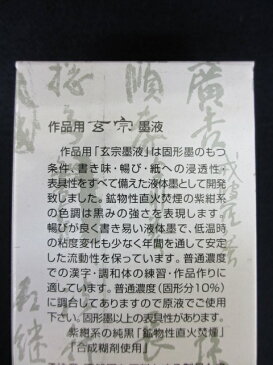 作品用 玄宗 墨液
作品用「玄宗墨液」は固形墨のもつ
条件、書き味・暢び・紙への浸透性・
表具性をすべて備えた液体墨として開発
致しました。鉱物性直火焚煙の紫紺系
の色調は黒みの強さを表現します。
暢びが良く書き易い液体墨で、低温時
の粘度変化も少なく年間を通して安定
した流動性を保っています。普通濃度
での漢字・調和体の練習・作品作りに
適しています。普通濃度(固形分10%)
に調合してありますので原液でご使用
下さい。固形墨以上の表具性があります。
紫紺系の純黒「鉱物性直火焚煙」
「合成糊剤使用」